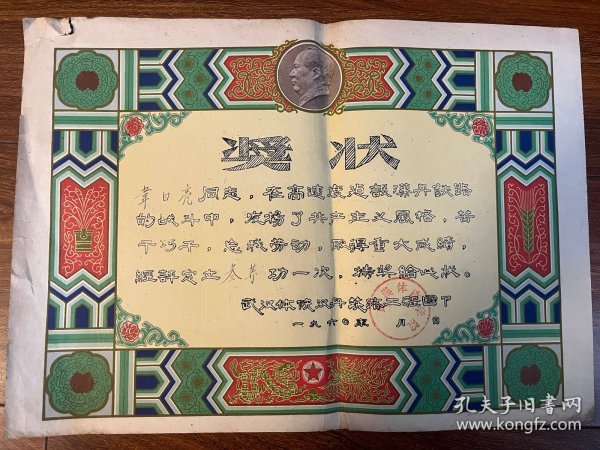 奬状
韋日亮同志，在高速度建設漢丹鉄路
的战斗中，发揚了共产主义風格，苦
干巧干，忘我劳动，取得重大成绩，
經評定立叁等功一次，特奬給此状。
武汉体院汉丹鉄路工程团
一九六〇年 月 日
孔夫子旧书网
www.kongfz.com